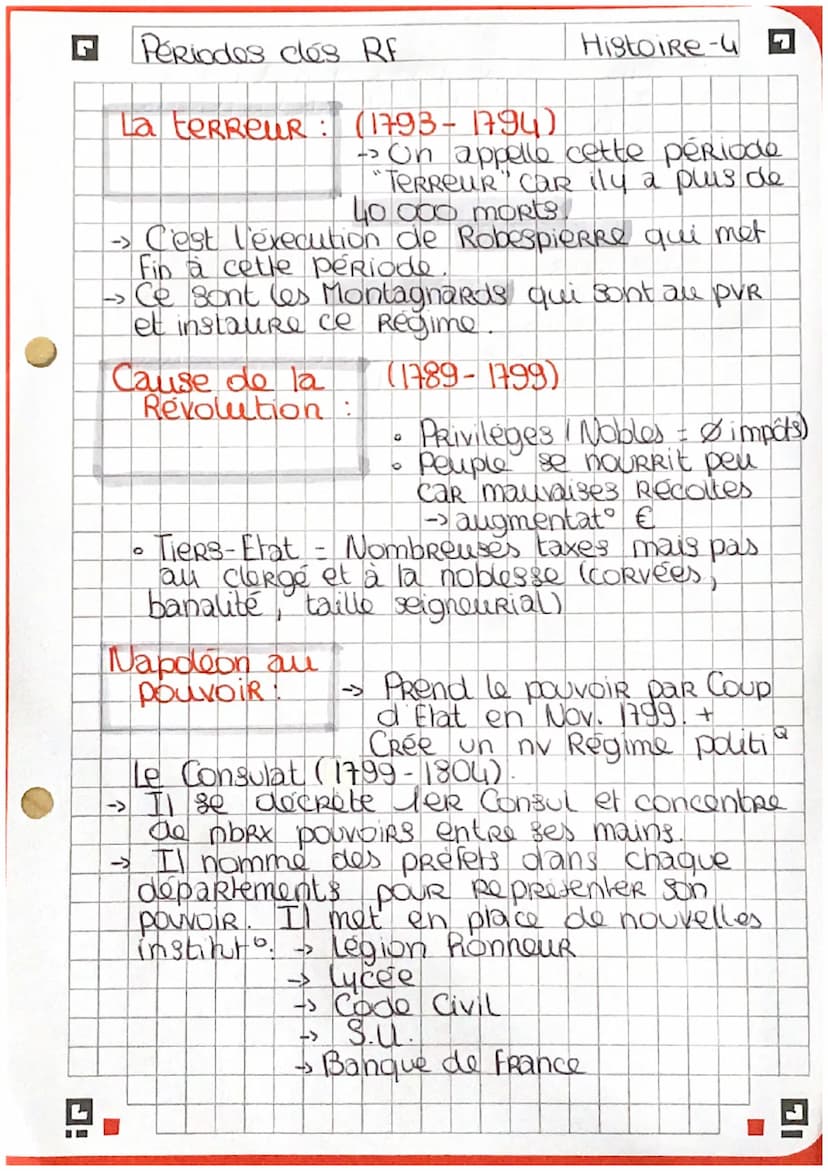 Périodes clés RF
Histoire-4
La terreur : (1793 - 1794)
-> On appelle cette période
"Terreur" car il y a plus de
40 000 morts.
-> C'est l'éxecution de Robespierre qui met
fin à cette période.
-> Ce sont les Montagnards qui sont au pvr
et instaure ce Régime.
Cause de la (1789 - 1799)
Révolution :
• Privilèges (Nobles = Ø impôts)
• Peuple se nourrit peu
car mauvaises Récoltes
-> augmentat° €
• Tiers-Etat = Nombreuses taxes mais pas
au clergé et à la noblesse (corvées,
banalité, taille seigneurial)
Napoléon au
pouvoir : -> Prend le pouvoir par Coup
d'Etat en Nov. 1799. +
Crée un nv Régime politiQ
Le Consulat (1799 - 1804).
-> Il se décrète 1er Consul et concentre
de nbrx pouvoirs entre ses mains.
-> Il nomme des préfets dans chaque
départements pour représenter son
pouvoir. Il met en place de nouvelles
institut°: -> Légion honneur
-> Lycée
-> Code Civil
-> S.U.
-> Banque de France